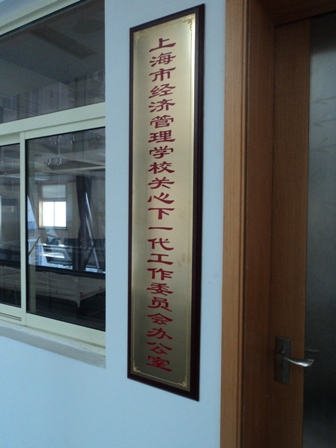 上海市经济管理学校关心下一代工作委员会办公室